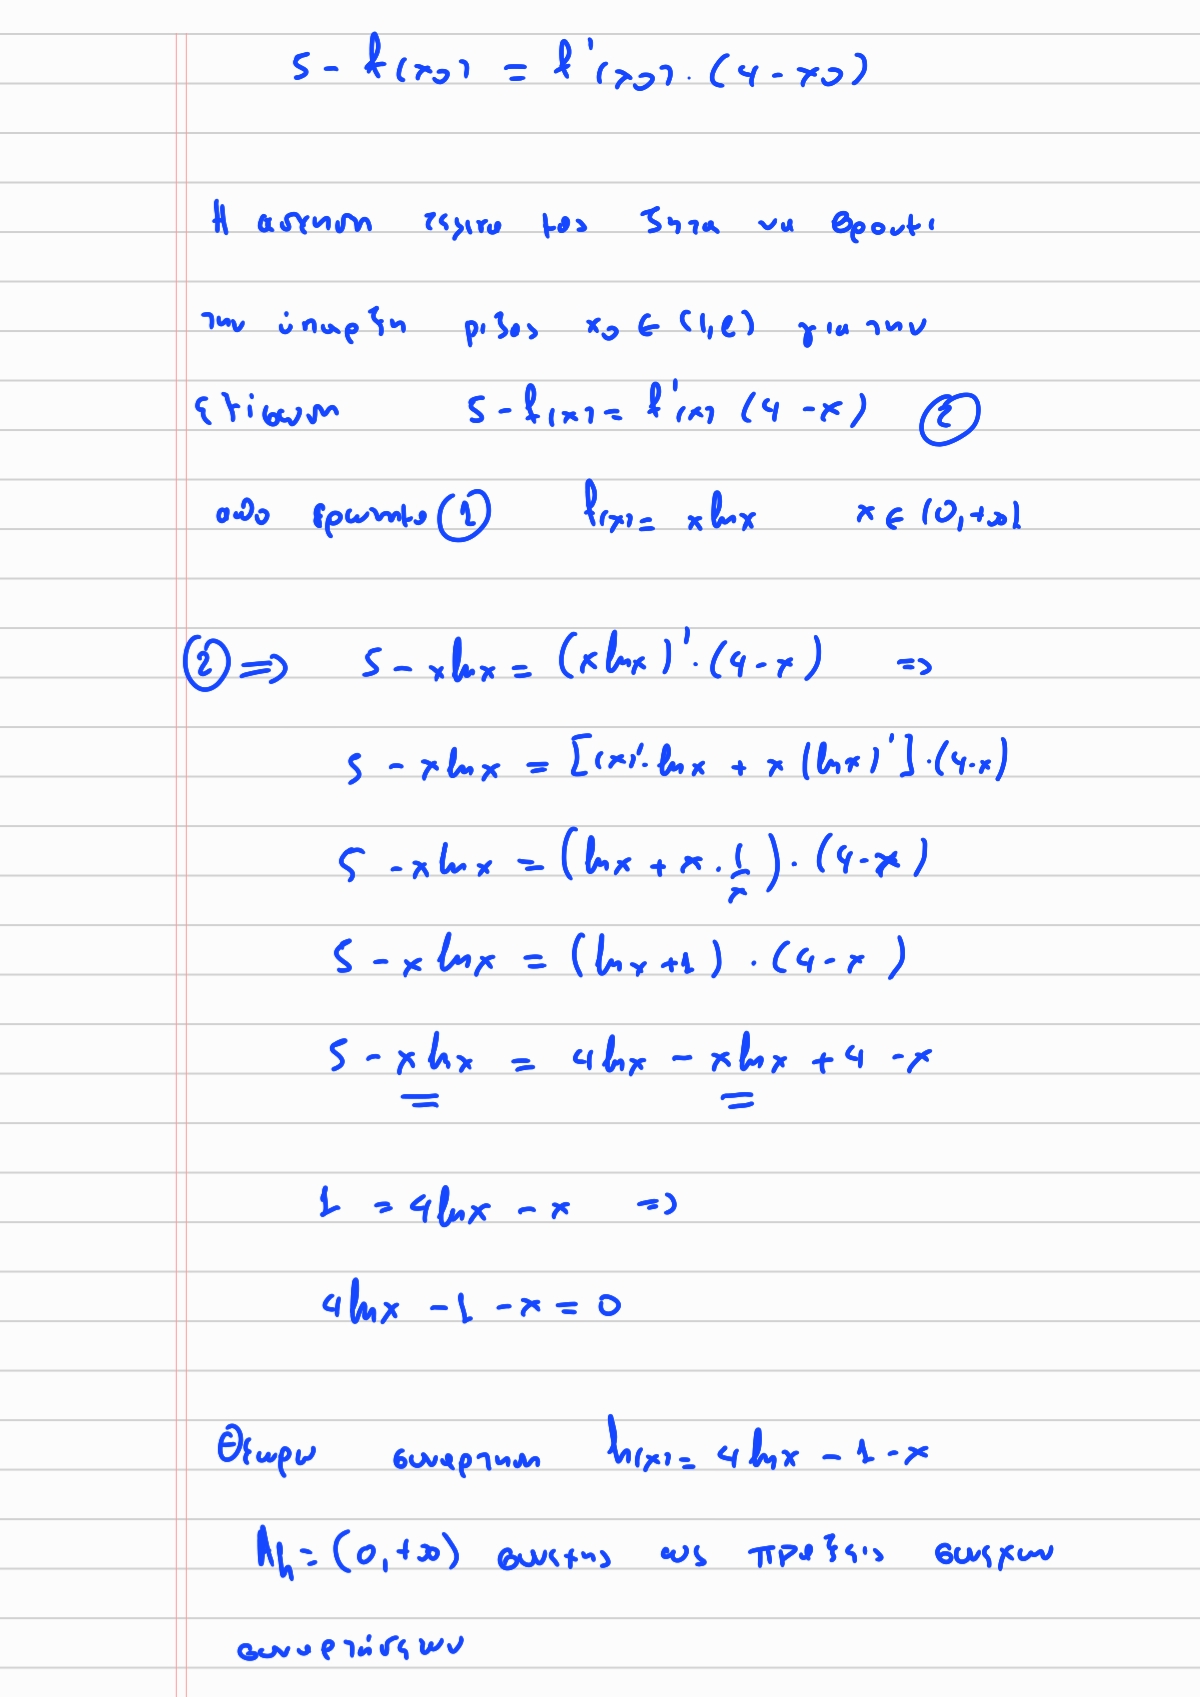 5 - f(x₀) = f'(x₀) · (4 - x₀)
Η άσκηση τελικα μας ζητα να βρουμε
την ύπαρξη ριζας x₀ ∈ (1, e) για την
εξίσωση 5 - f(x) = f'(x) (4 - x) ②
απο ερωτημα ① f(x) = x ln x x ∈ (0, +∞)
② ⇒ 5 - x ln x = (x ln x)' · (4 - x) ⇒
5 - x ln x = [(x)' · ln x + x (ln x)'] · (4 - x)
5 - x ln x = (ln x + x · 1/x) · (4 - x)
5 - x ln x = (ln x + 1) · (4 - x)
5 - x ln x = 4 ln x - x ln x + 4 - x
1 = 4 ln x - x ⇒
4 ln x - 1 - x = 0
Θεωρω συναρτηση h(x) = 4 ln x - 1 - x
Ah = (0, +∞) συνεχης ως πραξεις συνεχων
συναρτήσεων